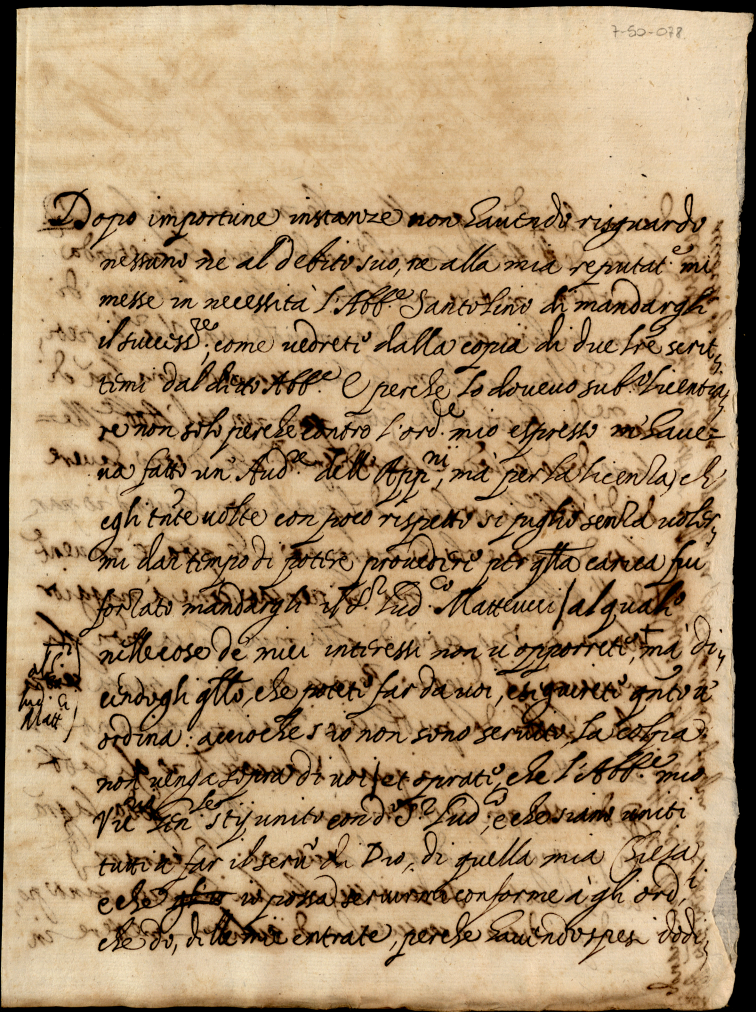 7-50-078
Dopo importune instanze non havendo risguardo
nessuno ne al debito suo, ne alla mia reputat.e mi
messe in necessità l'Abb.e Santolino di mandargli
il success.re, come vedrete dalla copia di due tre scrit=
temi dal ditto Abb.e E perche lo dovevo sub.o licentia=
re non solo perche contro l'ord.e mio espresso m'have=
va fatto un' Aud.re dell' App.ni, mà per la licenza, ch
egli tnte volte con poco rispetto si pigliò senza voler=
mi dar tempo di potere provedere per qlla carica fui
forzato mandargli il S.r Lud.co Matteucci / al quale
nelle cose de miei interessi non v'opporrete, + mà di=
cendogli qllo, che potete far da voi, esiguirete qnto v'
ordina: accioche s'io non sono servito, la colpa
non venga sopra di voi / et oprate, che l'Abb.e mio
Vic.o Gen.le stij unito con d.o S.r Lud.co, e che siano uniti
tutti à far il serv.o di Dio, di quella mia Chiesa,
e che io possa servirmi conforme à gli ord.i
che do, delle mie entrate, perche havendo spesi dodi=
Matt